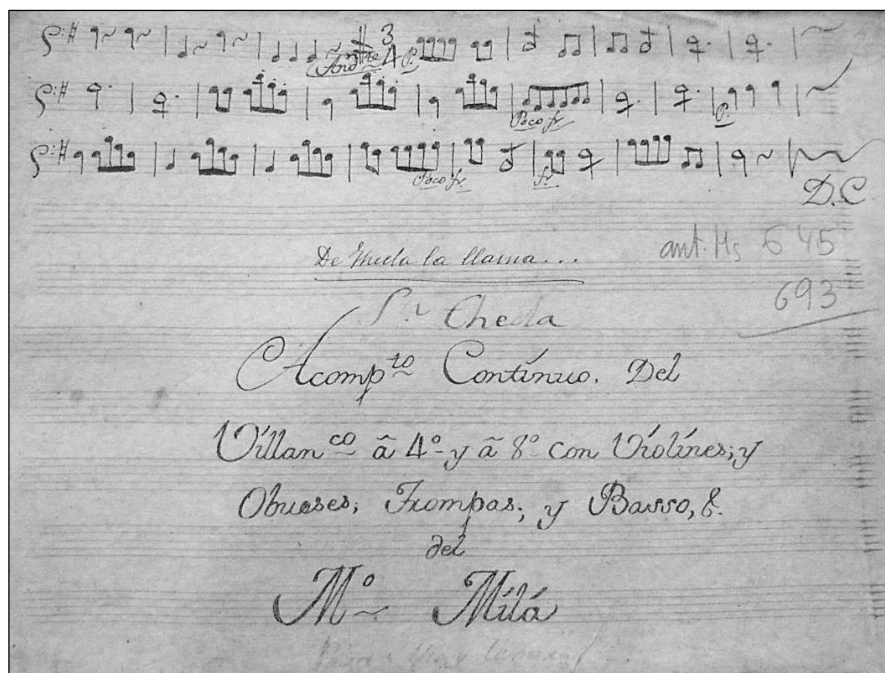 And.te 3 4 P.
Poco f. P.
Poco f. f.
D.C
De Thecla la llama...
ant. Ms 645
693
S.ta Checla
Acomp.to Contínuo. Del
Villan.co â 4.o y â 8.o con Violínes; y
Obueses; Trompas; y Basso, &.
del
M.o Milá